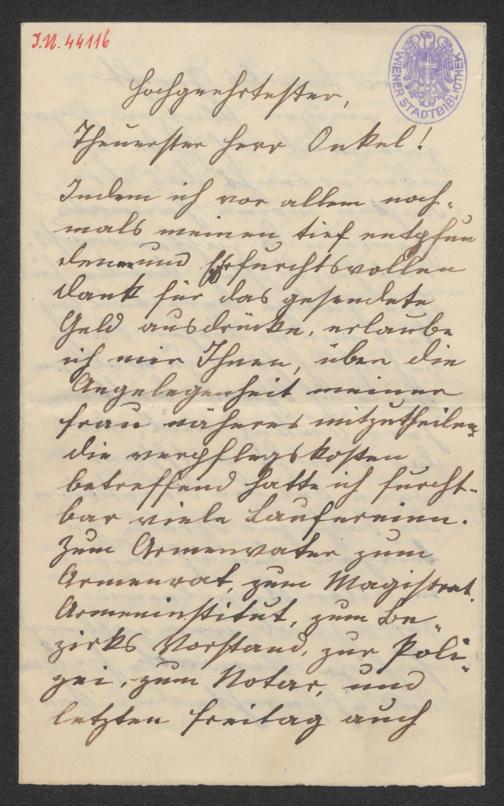 J.N. 44116
WIENER STADTBIBLIOTHEK
Hochgeehrtester,
Theuerster Herr Onkel!
Indem ich vor allem noch-
mals meinen tief entpfun
denen und Ehrfurchtsvollen
Dank für das gesendete
Geld ausdrücke, erlaube
ich mir Ihnen, über die
Angelegenheit meiner
Frau näheres mitzutheilen,
die verpflegskosten
betreffend hatte ich furcht-
bar viele Laufereien.
Zum Armenvater zum
Armenrat, zum Magistrat.
Armeninstitut, zum Be-
zirks Vorstand, zur Poli-
zei, zum Notar, und
letzten Freitag auch